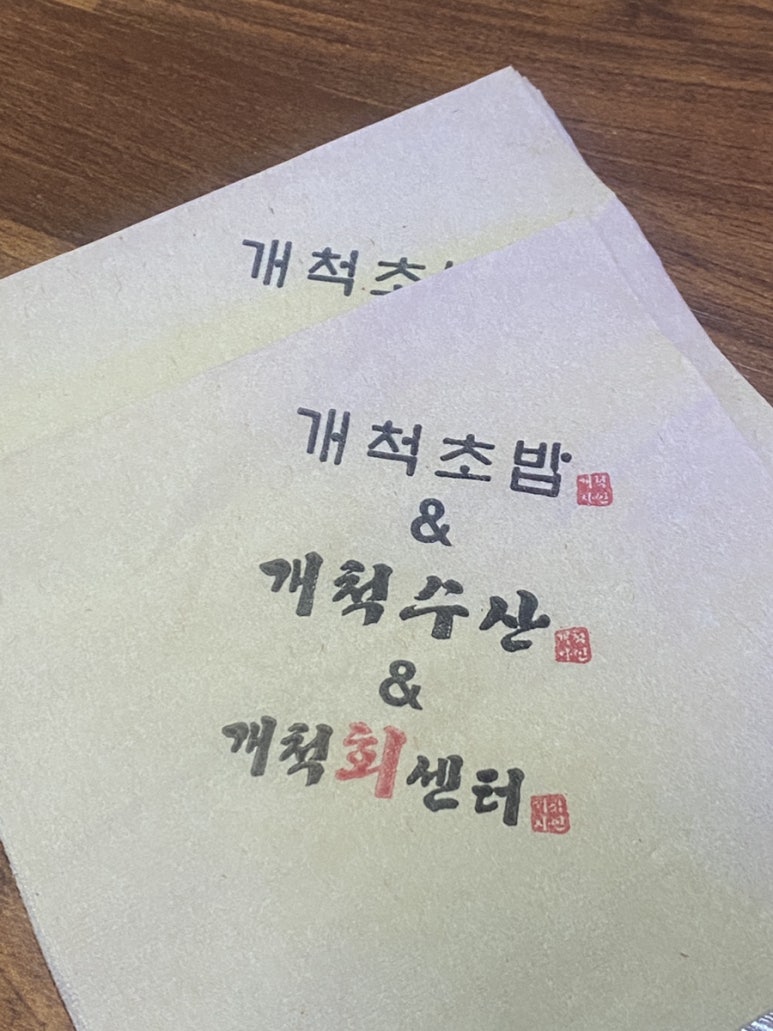 개척초
개척초밥
&
개척수산
&
개척회센터